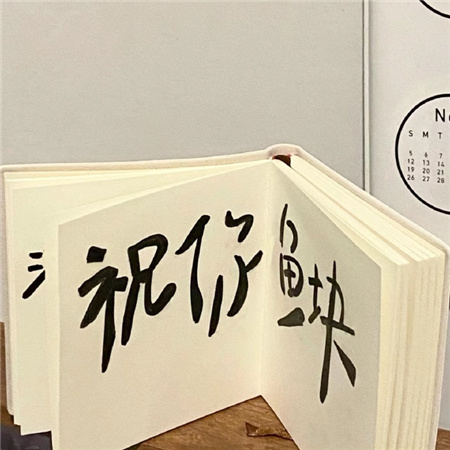 祝你鱼块
S M T
5 6 7
12 13 14
19 20 21
26 27 28